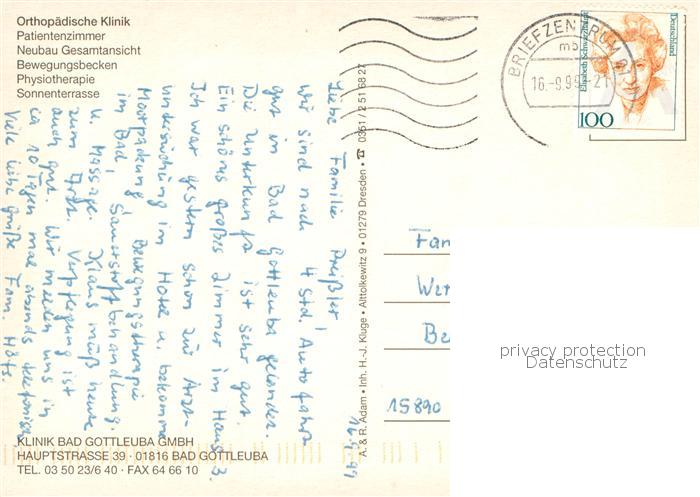 Orthopädische Klinik
Patientenzimmer
Neubau Gesamtansicht
Bewegungsbecken
Physiotherapie
Sonnenterrasse
Liebe Familie Preißler!
Wir sind nach 4 Std. Autofahrt
gut in Bad Gottleuba gelandet.
Die Unterkunft ist sehr gut.
Ein schönes großes Zimmer im Haus 3.
Ich war gestern schon zur Arzt-
untersuchung im Hotel u. bekomme
Moorpackung, Bewegungstherapie
im Bad, Sauerstoffbehandlung.
u. Massage. Klaus muß heute
zum Arzt. Verpflegung ist
auch gut. Wir melden uns in
ca 10 Tagen mal abends telefonisch
Viele liebe Grüße Fam.
KLINIK BAD GOTTLEUBA GMBH
HAUPTSTRASSE 39 · 01816 BAD GOTTLEUBA
TEL. 03 50 23/6 40 · FAX 64 66 10
A. & R. Adam • Inh. H.-J. Kluge • Alttolkewitz 9 • 01279 Dresden • ☎ 0351 / 2 51 68 27
BRIEFZENTRUM
16.-9.99-21
Elisabeth Schwarzhaupt
Deutschland
100
Fam
Wer
Be
15890
privacy protection
Datenschutz